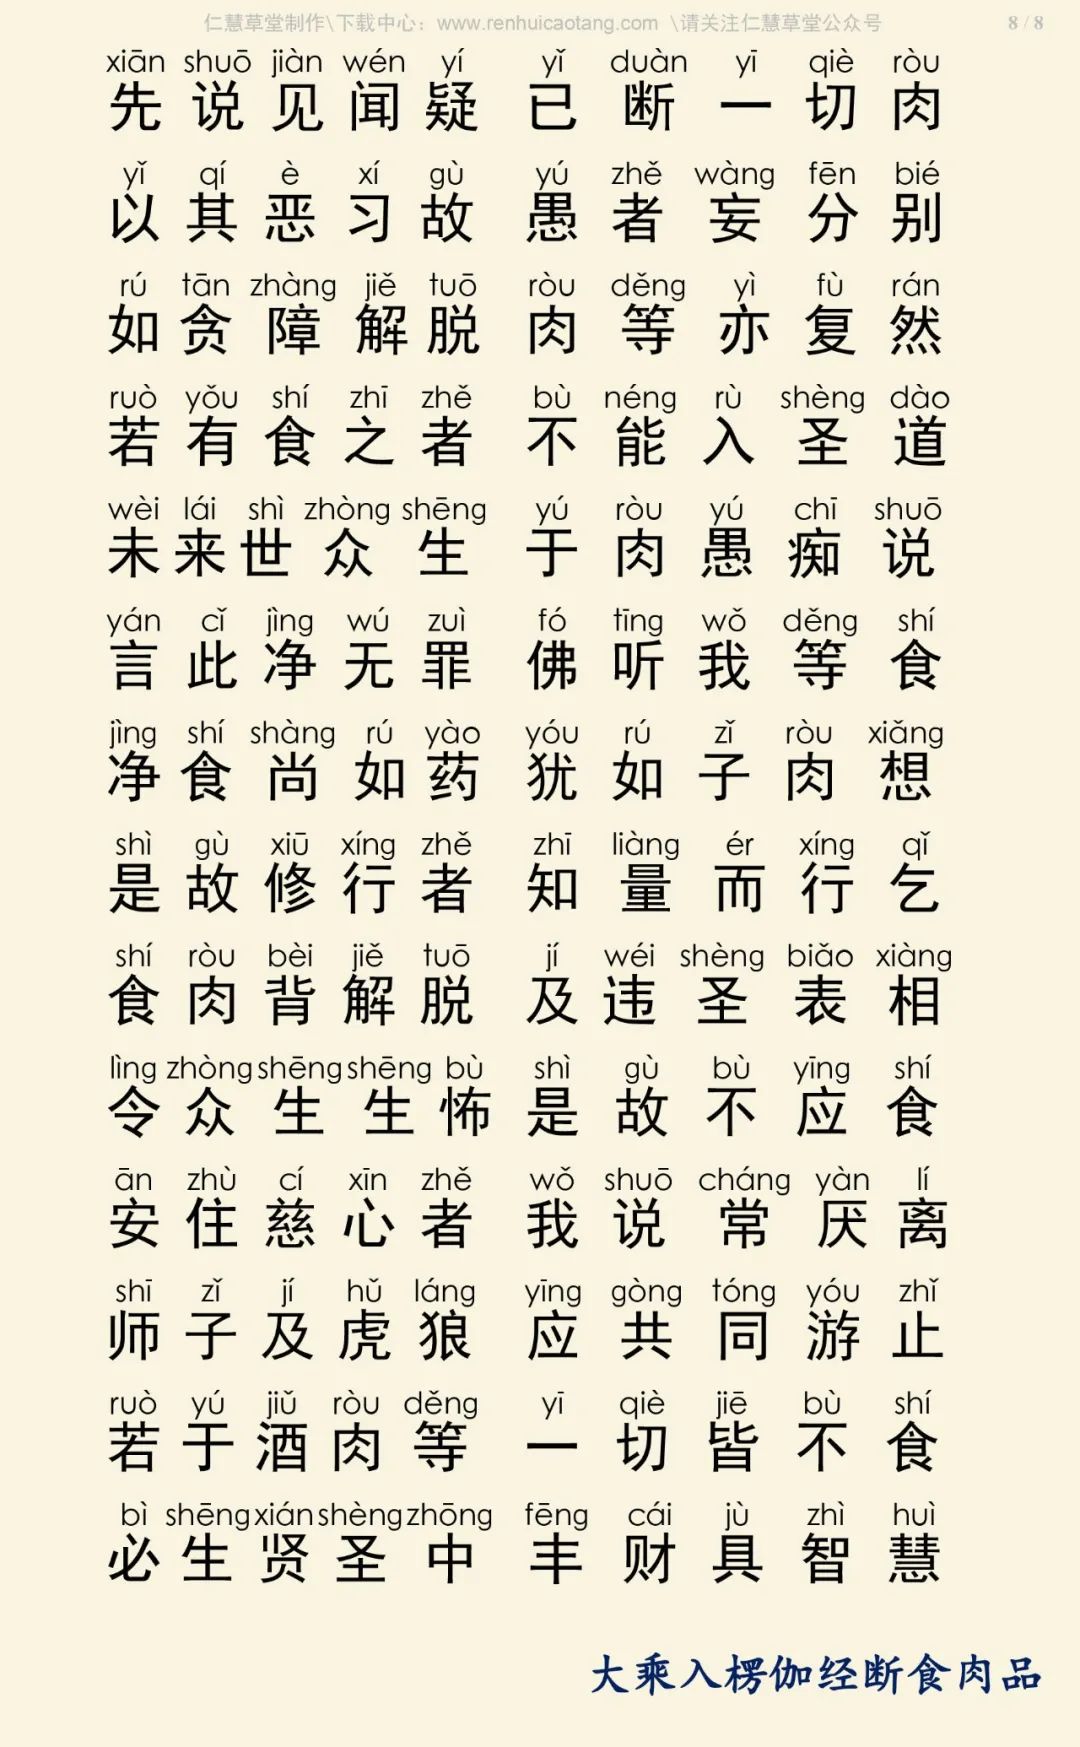 仁慧草堂制作\下载中心：www.renhuicaotang.com \请关注仁慧草堂公众号 8 / 8
xiān shuō jiàn wén yí yǐ duàn yī qiè ròu
先说见闻疑 已断一切肉
yǐ qí è xí gù yú zhě wàng fēn bié
以其恶习故 愚者妄分别
rú tān zhàng jiě tuō ròu děng yì fù rán
如贪障解脱 肉等亦复然
ruò yǒu shí zhī zhě bù néng rù shèng dào
若有食之者 不能入圣道
wèi lái shì zhòng shēng yú ròu yú chī shuō
未来世众生 于肉愚痴说
yán cǐ jìng wú zuì fó tīng wǒ děng shí
言此净无罪 佛听我等食
jìng shí shàng rú yào yóu rú zǐ ròu xiǎng
净食尚如药 犹如子肉想
shì gù xiū xíng zhě zhī liàng ér xíng qǐ
是故修行者 知量而行乞
shí ròu bèi jiě tuō jí wéi shèng biǎo xiàng
食肉背解脱 及违圣表相
lìng zhòng shēng shēng bù shì gù bù yīng shí
令众生生怖 是故不应食
ān zhù cí xīn zhě wǒ shuō cháng yàn lí
安住慈心者 我说常厌离
shī zǐ jí hǔ láng yīng gòng tóng yóu zhǐ
师子及虎狼 应共同游止
ruò yú jiǔ ròu děng yī qiè jiē bù shí
若于酒肉等 一切皆不食
bì shēng xián shèng zhōng fēng cái jù zhì huì
必生贤圣中 丰财具智慧
大乘入楞伽经断食肉品